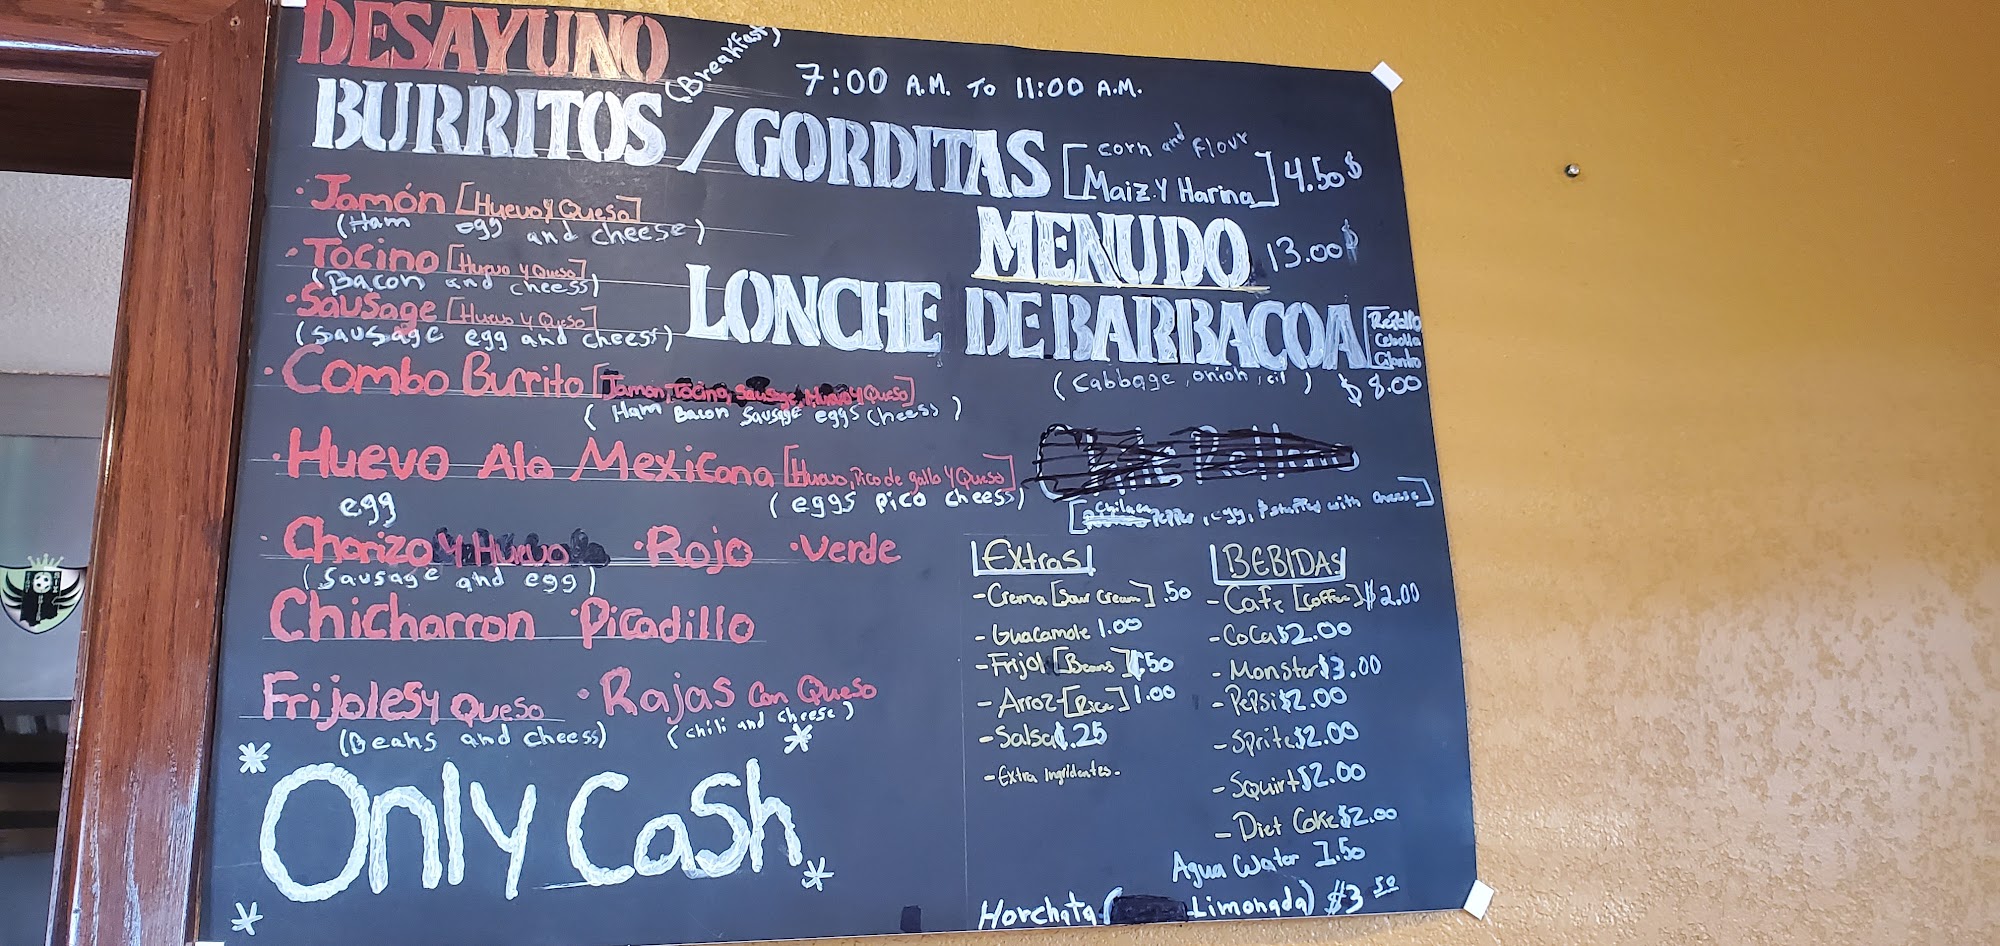 DESAYUNO
(Breakfast)
7:00 A.M. To 11:00 A.M.
BURRITOS / GORDITAS
[corn and Flour
Maiz Y Harina] 4.50$
• Jamón [Huevo Y Queso]
(Ham egg and cheese)
• Tocino [Huevo Y Queso]
(Bacon and cheess)
• Sausage [Huevo Y Queso]
(Sausage egg and cheess)
• Combo Burrito [Jamon, Tocino, Sausage, Huevo Y Queso]
(Ham Bacon Sausage eggs cheess)
• Huevo Ala Mexicana [Huevo, Pico de gallo Y Queso]
egg (eggs Pico cheess)
• Chorizo Y Huevo • Rojo • Verde
(Sausage and egg)
Chicharron • Picadillo
Frijoles y Queso • Rajas Con Queso
(Beans and cheess) (chili and cheese)
* Only Cash *
MENUDO 13.00$
LONCHE DE BARBACOA [Repollo
Cebolla
Cilantro
(Cabbage, onion, cil) $8.00
Chile Relleno
Pepper, egg, stuffed with cheese]
Extras
- Crema [Sour Cream] .50
- Guacamole 1.00
- Frijol [Beans] .50
- Arroz [Rice] 1.00
- Salsa $.25
- Extra Ingridentes -
BEBIDAS
- Cafe [Coffee] $2.00
- CoCa $2.00
- Monster $3.00
- Pepsi $2.00
- Sprite $2.00
- Squirt $2.00
- Diet Coke $2.00
Agua Water 1.50
Horchata ( Limonada) $3.50